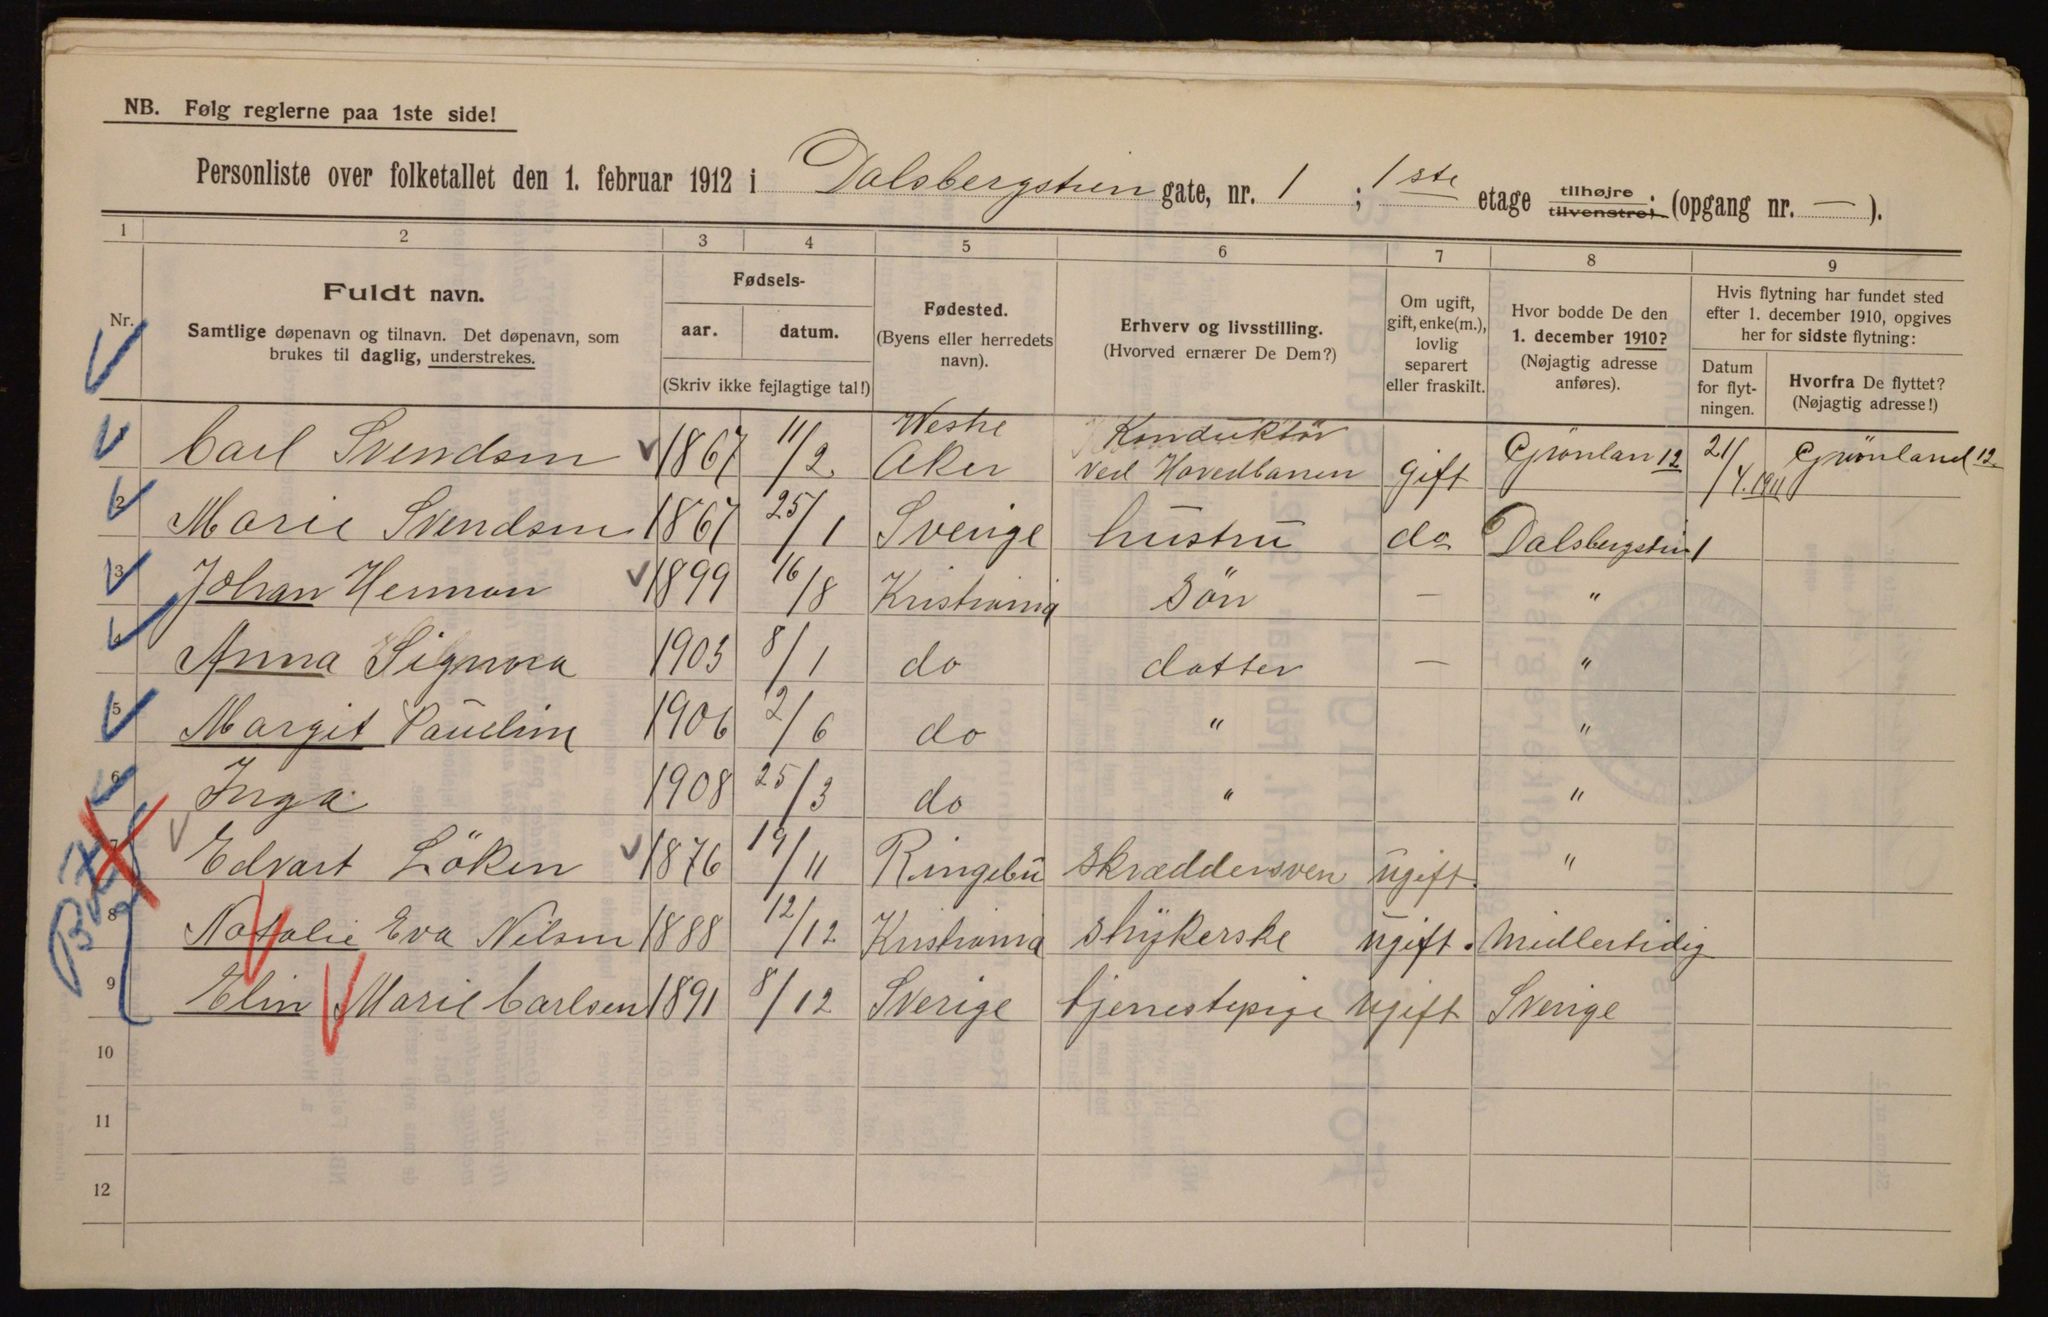 NB. Følg reglerne paa 1ste side!
Personliste over folketallet den 1. februar 1912 i Dalsbergstien gate, nr. 1 ; 1ste etage tilhøjre tilvenstre; (opgang nr. — ).
1 2 3 4 5 6 7 8 9
Nr.
Fuldt navn.
Samtlige døpenavn og tilnavn. Det døpenavn, som
brukes til daglig, understrekes.
Fødsels-
aar. datum.
(Skriv ikke fejlagtige tal!)
Fødested.
(Byens eller herredets
navn).
Erhverv og livsstilling.
(Hvorved ernærer De Dem?)
Om ugift,
gift, enke(m.),
lovlig
separert
eller fraskilt.
Hvor bodde De den
1. december 1910?
(Nøjagtig adresse
anføres).
Hvis flytning har fundet sted
efter 1. december 1910, opgives
her for sidste flytning:
Datum
for flyt-
ningen.
Hvorfra De flyttet?
(Nøjagtig adresse!)
Carl Svendsen 1867 11/2 Westre Aker Konduktör ved Hovedbanen gift Grönlan 12 21/4.1911 Grönland 12.
2 Marie Svendsen 1867 25/1 Sverige hustru do Dalsbergstien 1
3 Johan Herman 1899 16/8 Kristiania Sön — "
4 Anna Signora 1903 8/1 do datter — "
5 Margit Pauline 1906 2/6 do " "
6 Inga 1908 25/3 do " "
7 Edvart Löken 1876 19/11 Ringebu Skræddersven ugift. "
8 Natalie Eva Nilsen 1888 12/12 Kristiania Strykerske ugift. Midlertidig
9 Elin Marie Carlsen 1891 8/12 Sverige tjenestepige ugift Sverige
10
11
12